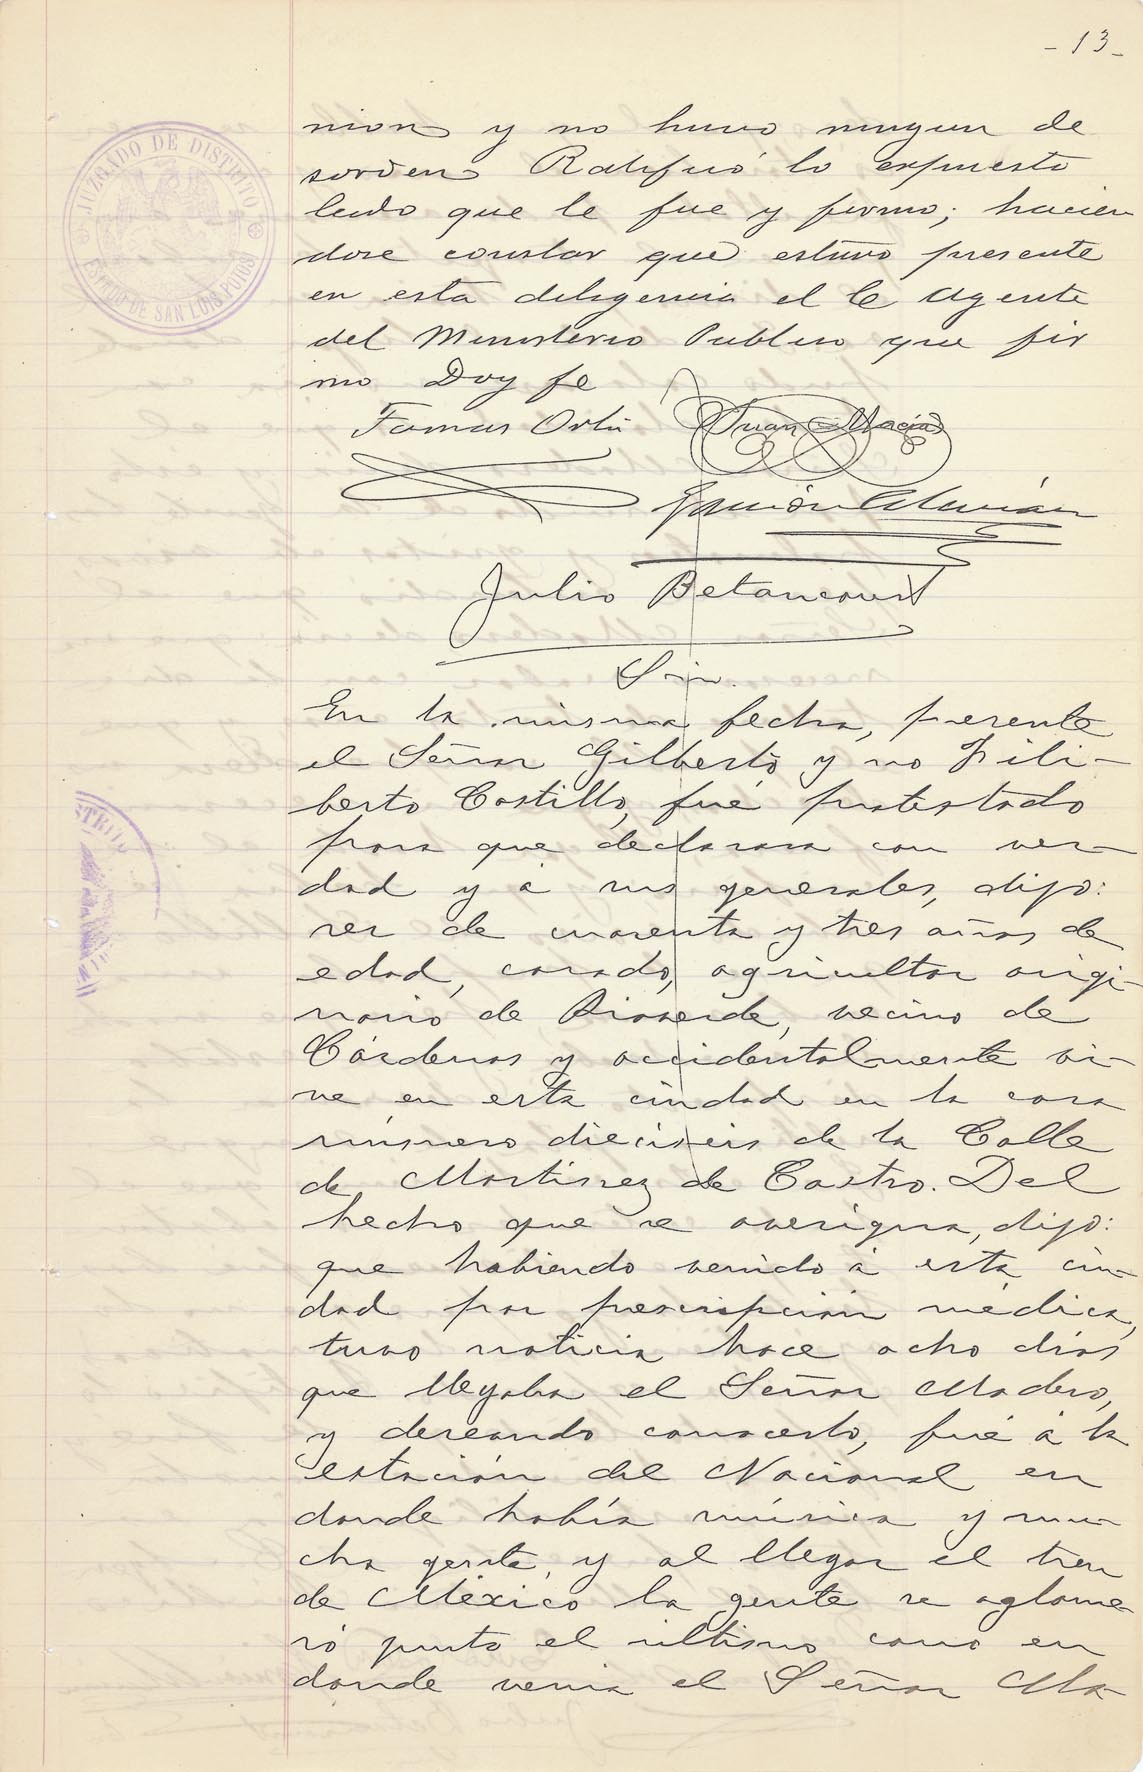 -13-
JUZGADO DE DISTRITO
ESTADO DE SAN LUIS POTOSI
nion y no huvo ningun de
sorden Ratificó lo expuesto
leido que le fue y firmo; hacien
dose constar que estuvo presente
en esta diligencia el C Agente
del Ministerio Publico que fir
mo Doy fe
Tomas Ortiz Juan Macias
Ramón Alemán
Julio Betancourt
Srio.
En la misma fecha, presente
el Señor Gilberto y no Fili-
berto Castillo, fué protestado
para que declarara con ver-
dad y á sus generales, dijo:
ser de cuarenta y tres años de
edad, casado, agricultor origi-
nario de Rioverde, vecino de
Cárdenas y accidentalmente vi-
ve en esta ciudad en la casa
número dieciseis de la Calle
de Martinez de Castro. Del
hecho que se averigua, dijo:
que habiendo venido á esta ciu-
dad por prescripción médica,
tuvo noticia hace ocho dias
que llegaba el Señor Madero,
y deseando conocerlo, fué á la
estación del Nacional en
donde había música y mu-
cha gente, y al llegar el tren
de México la gente se aglome-
ró junto el ultimo carro en
donde venia el Señor Ma-
STRITO